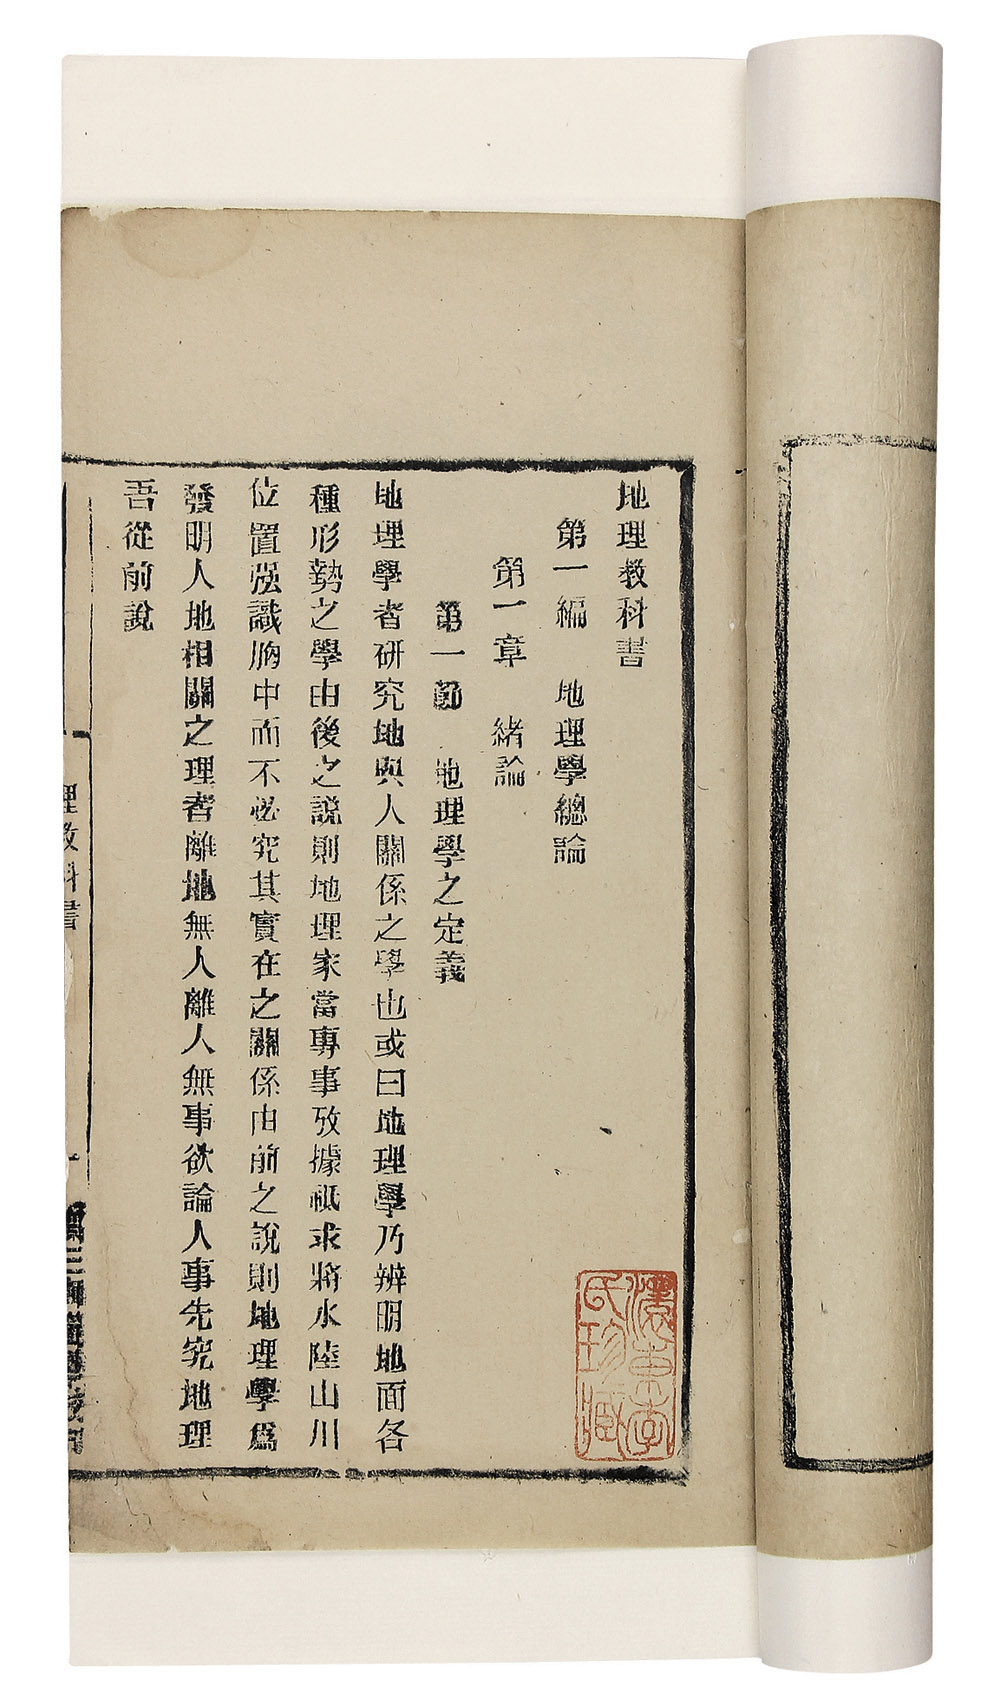 地理教科書
第一編　地理學總論
第一章　緒論
第一節　地理學之定義
地理學者研究地與人關係之學也或曰地理學乃辨明地面各
種形勢之學由後之説則地理家當專事攷據祇求將水陸山川
位置强識胸中而不必究其實在之關係由前之說則地理學爲
發明人地相關之理者離地無人離人無事欲論人事先究地理
吾從前說
理教科書
一
漢東李氏珍藏